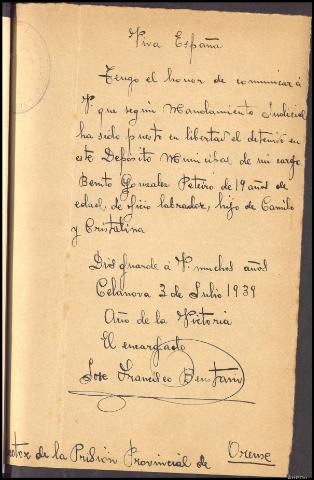 Viva España
Tengo el honor de comunicar á
V. que segun Mandamiento Judicial
ha sido puesto en libertad el detenido en
este Depósito Municipal de mi cargo
Benito Gonzalez Peteiro de 19 años de
edad, de oficio labrador, hijo de Camilo
y Cristalina
Dios guarde á V. muchos años
Celanova 3 de Julio 1939
Año de la Victoria
El encargado
Jose Francisco
ector de la Prision Provincial de Orense